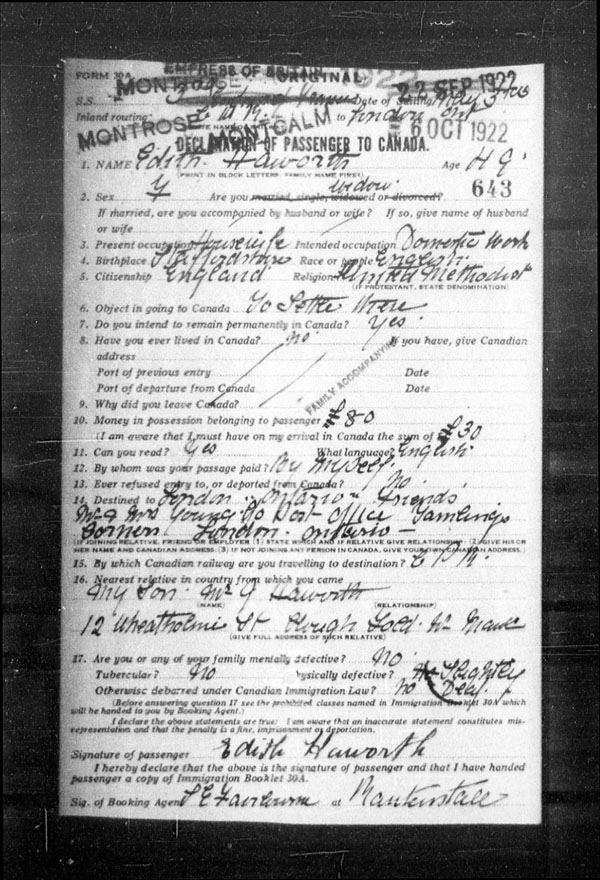 FORM 30A EMPRESS OF BRITAIN ORIGINAL 1922
MONTROSE 22 SEP 1922
S.S. Date of Sailing
Inland routing to London Ont
MONTROSE MONTCALM 6 OCT 1922
DECLARATION OF PASSENGER TO CANADA.
1. NAME Edith Haworth Age 49
(PRINT IN BLOCK LETTERS, FAMILY NAME FIRST)
643
widow
2. Sex Are you married, single, widowed or divorced?
If married, are you accompanied by husband or wife? If so, give name of husband
or wife
3. Present occupation Housewife Intended occupation Domestic Work
4. Birthplace Staffordshire Race or people English
5. Citizenship England Religion United Methodist
(IF PROTESTANT, STATE DENOMINATION)
6. Object in going to Canada To Settle there
7. Do you intend to remain permanently in Canada? Yes
8. Have you ever lived in Canada? no If you have, give Canadian
address
Port of previous entry Date
Port of departure from Canada Date
FAMILY ACCOMPANYING
9. Why did you leave Canada?
10. Money in possession belonging to passenger £80
(I am aware that I must have on my arrival in Canada the sum of £30
11. Can you read? Yes What language? English
12. By whom was your passage paid? By Myself
13. Ever refused entry to, or deported from Canada? No
14. Destined to London Ontario Friends
Mr & Mrs Young Post Office
Corners London Ontario
(IF JOINING RELATIVE, FRIEND OR EMPLOYER (1) STATE WHICH AND IF RELATIVE GIVE RELATIONSHIP (2) GIVE HIS OR
HER NAME AND CANADIAN ADDRESS. (3) IF NOT JOINING ANY PERSON IN CANADA, GIVE YOUR OWN CANADIAN ADDRESS.)
15. By which Canadian railway are you travelling to destination? C.P.R.
16. Nearest relative in country from which you came
My Son Mr Haworth
(NAME) (RELATIONSHIP)
12 Wheatholme St Clough Fold Nr Manc
(GIVE FULL ADDRESS OF SUCH RELATIVE)
17. Are you or any of your family mentally defective? No
Tubercular? No Physically defective? Slightly
Otherwise debarred under Canadian Immigration Law? No Deaf
(Before answering question 17 see the prohibited classes named in Immigration Booklet 30A which
will be handed to you by Booking Agent.)
I declare the above statements are true: I am aware that an inaccurate statement constitutes mis-
representation and that the penalty is a fine, imprisonment or deportation.
Signature of passenger Edith Haworth
I hereby declare that the above is the signature of passenger and that I have handed
passenger a copy of Immigration Booklet 30A.
Sig. of Booking Agent at Rawtenstall